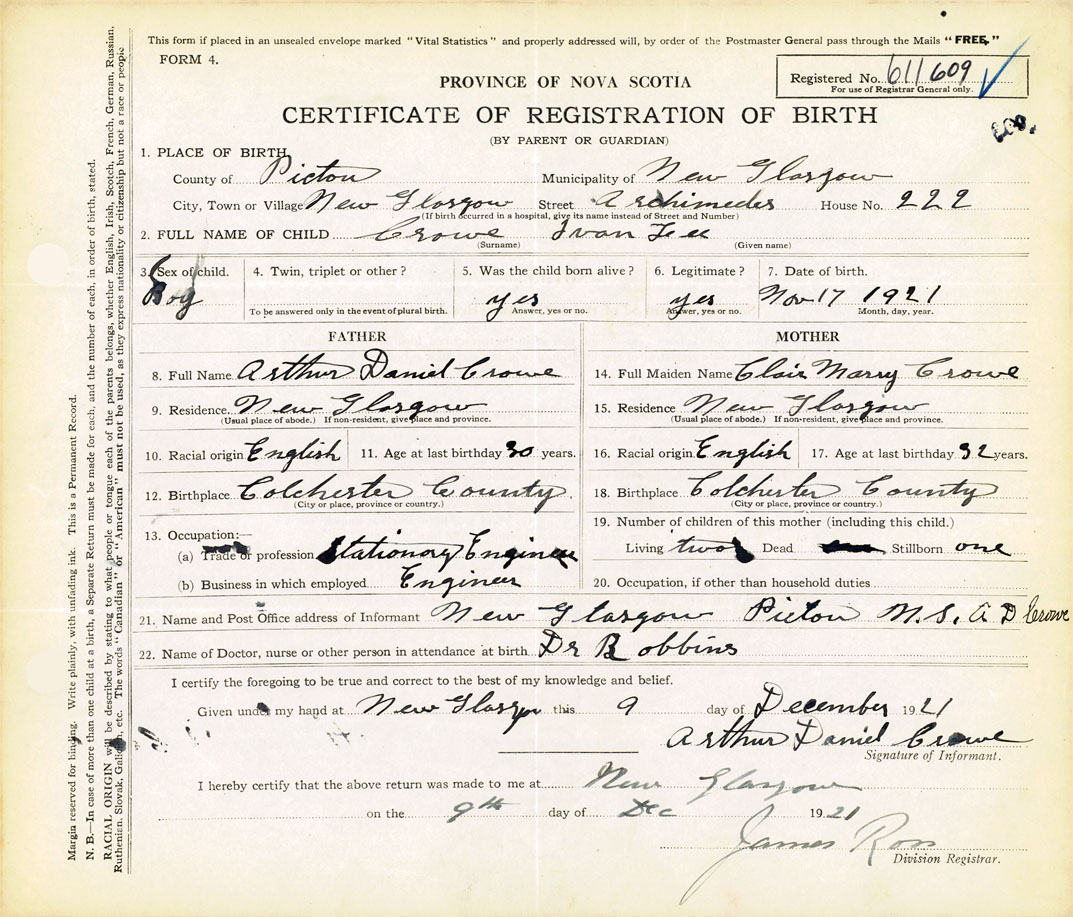 This form if placed in an unsealed envelope marked "Vital Statistics" and properly addressed will, by order of the Postmaster General pass through the Mails "FREE."
FORM 4.
Registered No. 611609
For use of Registrar General only.
PROVINCE OF NOVA SCOTIA
CERTIFICATE OF REGISTRATION OF BIRTH
(BY PARENT OR GUARDIAN)
1. PLACE OF BIRTH
County of Picton Municipality of New Glasgow
City, Town or Village New Glasgow Street Archimedes House No. 222
(If birth occurred in a hospital, give its name instead of Street and Number)
2. FULL NAME OF CHILD Crowe Ivan Lee
(Surname) (Given name)
3. Sex of child. 4. Twin, triplet or other? 5. Was the child born alive? 6. Legitimate? 7. Date of birth.
Boy yes yes Nov 17 1921
To be answered only in the event of plural birth. Answer, yes or no. Answer, yes or no. Month, day, year.
FATHER
8. Full Name Arthur Daniel Crowe
9. Residence New Glasgow
(Usual place of abode.) If non-resident, give place and province.
10. Racial origin English 11. Age at last birthday 30 years.
12. Birthplace Colchester County.
(City or place, province or country.)
13. Occupation:—
(a) Trade or profession Stationary Engineer
(b) Business in which employed Engineer
MOTHER
14. Full Maiden Name Clair Marry Crowe
15. Residence New Glasgow
(Usual place of abode.) If non-resident, give place and province.
16. Racial origin English 17. Age at last birthday 32 years.
18. Birthplace Colchester County
(City or place, province or country.)
19. Number of children of this mother (including this child.)
Living two Dead Stillborn one
20. Occupation, if other than household duties
21. Name and Post Office address of Informant New Glasgow Picton N.S. A D Crowe
22. Name of Doctor, nurse or other person in attendance at birth. Dr Robbins
I certify the foregoing to be true and correct to the best of my knowledge and belief.
Given under my hand at New Glasgow this 9 day of December 1921
Arthur Daniel Crowe
Signature of Informant.
I hereby certify that the above return was made to me at New Glasgow
on the 9th day of Dec 1921
James Ross
Division Registrar.
Margin reserved for binding. Write plainly, with unfading ink. This is a Permanent Record.
N. B.—In case of more than one child at a birth, a Separate Return must be made for each, and the number of each, in order of birth, stated.
RACIAL ORIGIN will be described by stating to what people or tongue each of the parents belongs, whether English, Irish, Scotch, French, German, Russian,
Ruthenian, Slovak, Galician, etc. The words "Canadian" or "American" must not be used, as they express nationality or citizenship but not a race or people